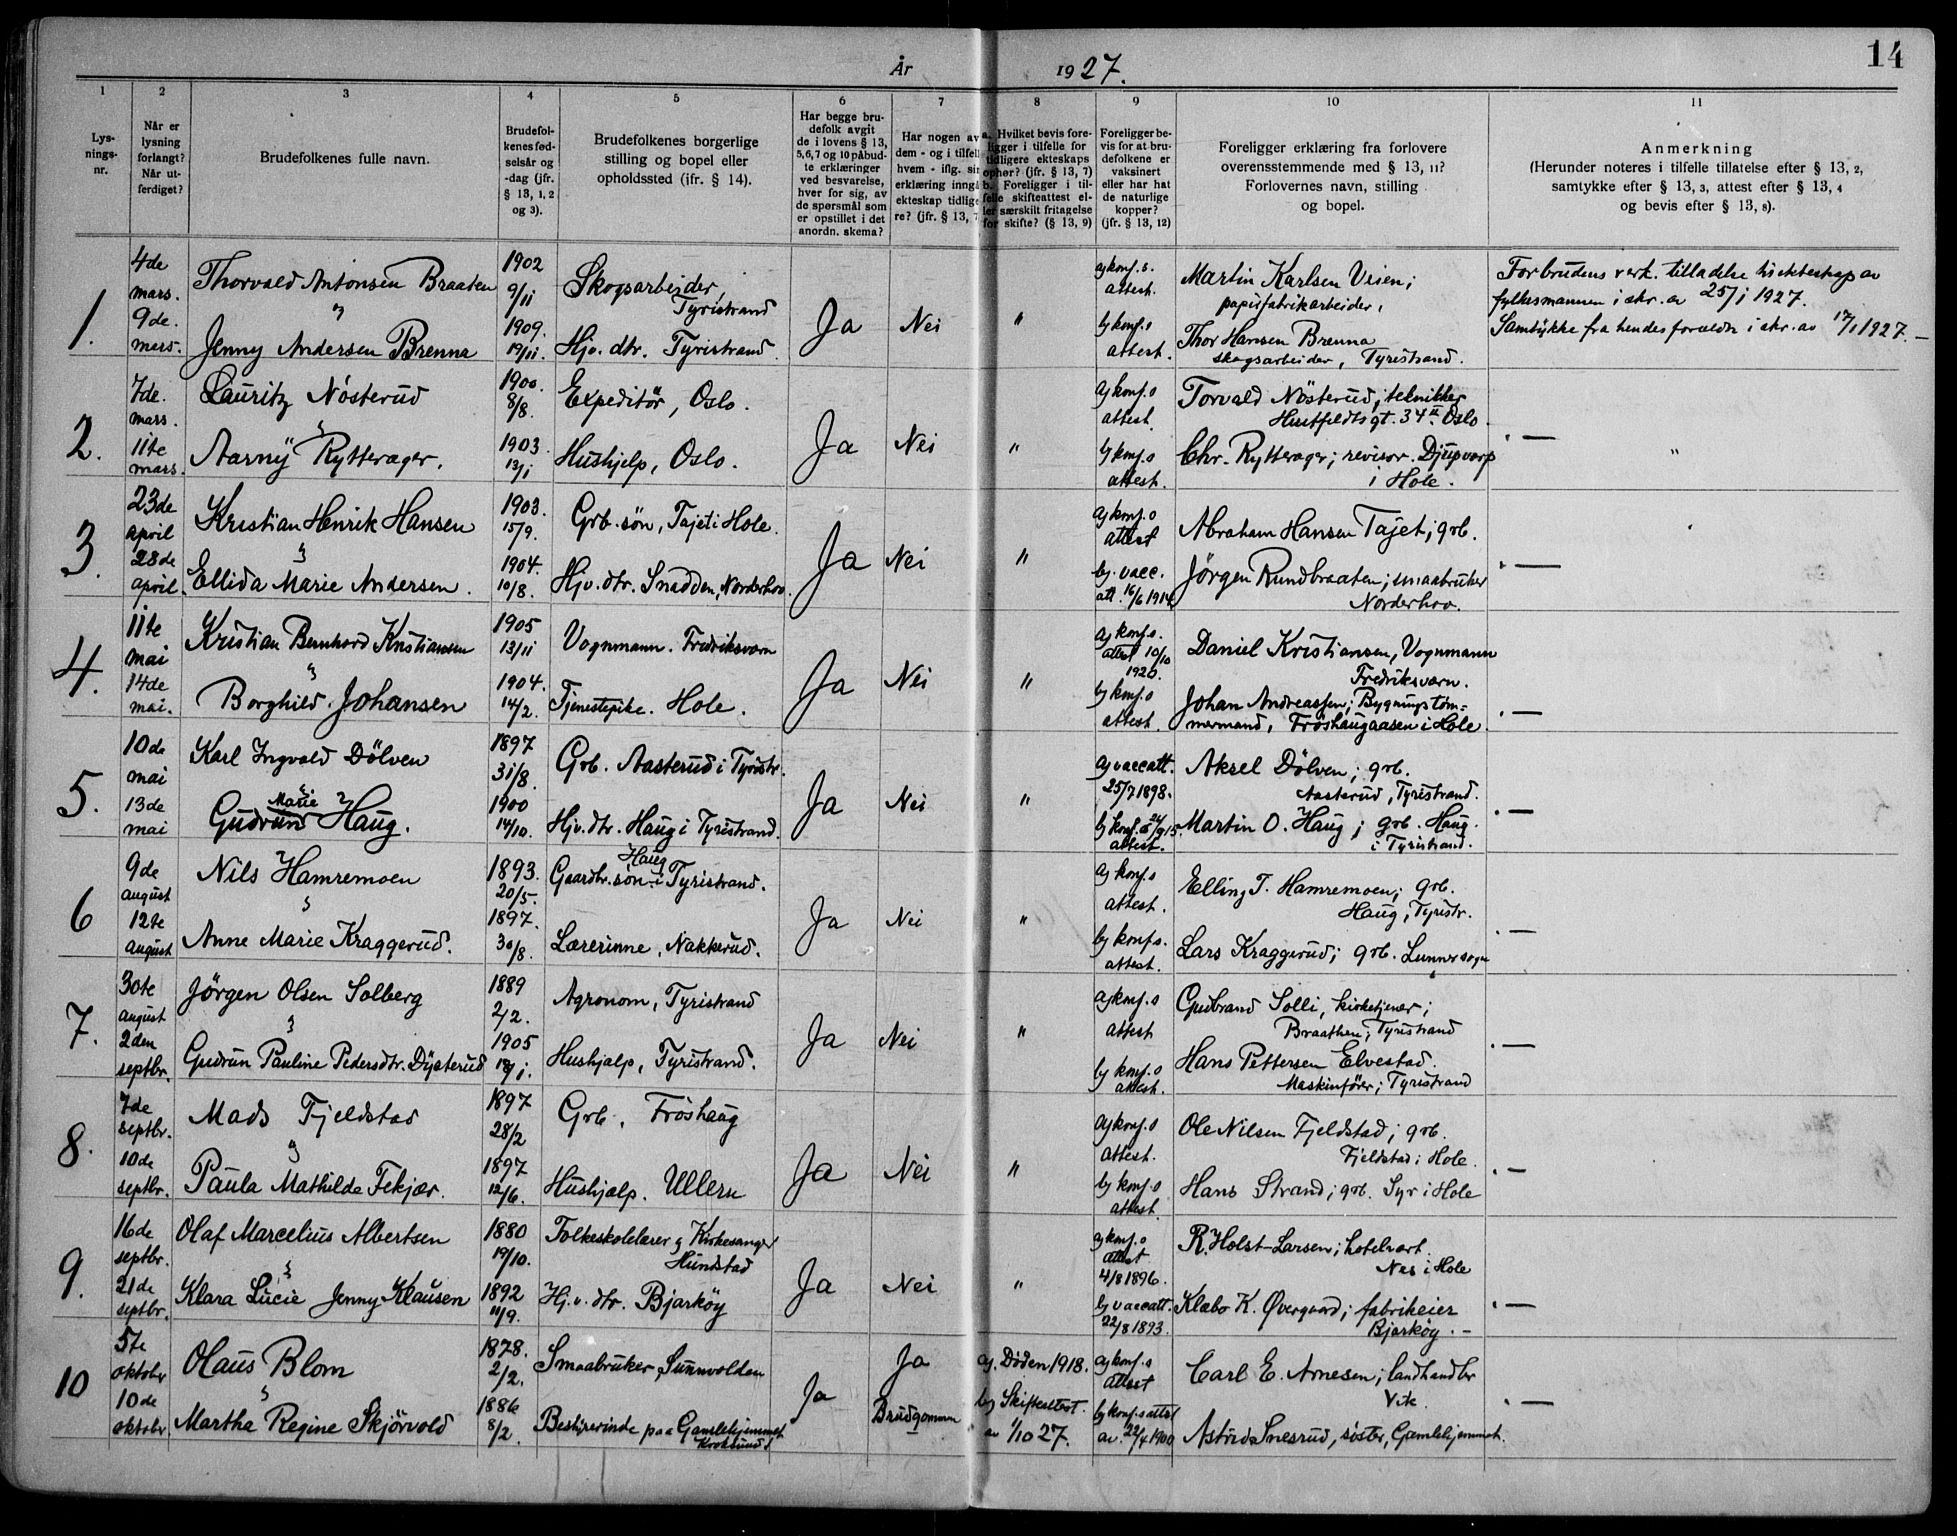 14
År 1927.
1 2 3 4 5 6 7 8 9 10 11
Lys-
nings-
nr.
Når er
lysning
forlangt?
Når ut-
ferdiget?
Brudefolkenes fulle navn.
Brudefol-
kenes fød-
selsår og
-dag (jfr.
§ 13, 1, 2
og 3).
Brudefolkenes borgerlige
stilling og bopel eller
opholdssted (jfr. § 14).
Har begge bru-
defolk avgit
de i lovens § 13,
5,6,7 og 10 påbud-
te erklæringer
ved besvarelse,
hver for sig, av
de spørsmål som
er opstillet i det
anordn. skema?
Har nogen av
dem - og i tilfell
hvem - iflg. sin
erklæring inngå
ekteskap tidlige
re? (jfr. § 13, 7
a. Hvilket bevis fore-
ligger i tilfelle for
tidligere ekteskaps
ophør? (jfr. § 13, 7)
b. Foreligger i til-
felle skifteattest el-
ler særskilt fritagelse
for skifte? (§ 13, 9)
Foreligger be-
vis for at bru-
defolkene er
vaksinert
eller har hat
de naturlige
kopper?
(jfr. § 13, 12)
Foreligger erklæring fra forlovere
overensstemmende med § 13, 11?
Forlovernes navn, stilling
og bopel.
Anmerkning
(Herunder noteres i tilfelle tillatelse efter § 13, 2,
samtykke efter § 13, 3, attest efter § 13, 4
og bevis efter § 13, 8).
1.
4de
mars.
9de.
mars.
Thorvald Antonsen Braaten
"
Jenny Andersen Brenna
1902
9/11
1909.
19/11.
Skogsarbeider,
Tyristrand
Hjv. dtr. Tyristrand
Ja
Nei
"
a) konf.s.
attest.
b) konf.s
attest.
Martin Karlsen Veien;
papirfabrikarbeider,
Thor Hansen Brenna
skogsarbeider, Tyristrand.
For brudens verk. tilladelse til ekteskap av
fylkesmannen i skr. av 25/1 1927.
Samtykke fra hendes foreldre i skr. av 17/1 1927. —
2.
7de.
mars.
11te
mars.
Lauritz Nösterud
"
Aarny Rytterager.
1900.
8/8.
1903.
13/1
Expeditör, Oslo.
Hushjelp, Oslo.
Ja
Nei
"
a) konf.s
attest.
b) konf.s
attest.
Torvald Nösterud; tekniker
Huitfeldtsgt. 34 II Oslo.
Chr. Rytterager; revisor. Djupvarp
i Hole.
. —
3.
23de
april
28de
april.
Kristian Henrik Hansen
"
Ellida Marie Andersen.
1903.
15/9.
1904.
10/8.
Grb. søn, Tajet i Hole.
Hjv. dtr. Snadden, Norderhov.
Ja
Nei
"
a) konf.s
attest
b) vacc.
att. 16/6 1914
Abraham Hansen Tajet; grb.
Jörgen Rundbraaten; smaabruker
Norderhov.
. —
4.
11te
mai
14de
mai.
Kristian Bernhard Kristiansen
"
Borghild Johansen
1905
13/11
1904.
14/2.
Vognmann. Fredriksværn
Tjenestepike. Hole.
Ja
Nei
"
a) konf.s.
attest 10/10
1920.
b) konf.s
attest.
Daniel Kristiansen, Vognmann
Fredriksværn.
Johan Andreassen; Bygningstöm-
mermand, Fröshaugaasen i Hole.
. —
5.
10de
mai
13de
mai
Karl Ingvald Dölven
"
Marie
Gudrun Haug.
1897
31/8.
1900
14/10.
Grb. Aasterud i Tyristr.
Hjv. dtr. Haug i Tyristrand.
Ja
Nei
"
a) vaccatt.
25/7 1898.
b) konf.s 24/9 15.
attest.
Aksel Dölven; grb.
Aasterud, Tyristrand.
Martin O. Haug; grb. Haug.
i Tyristrand.
. —
6
9de
august
12te
august
Nils Hamremoen
"
Anne Marie Kraggerud.
1893.
20/5.
1897.
30/8.
Haug
Gaardbr. søn i Tyristrand.
Lærerinne, Nakkerud.
Ja
Nei
"
a) konf.s
attest.
b) konf.s.
attest.
Elling T. Hamremoen; grb.
Haug, Tyristr.
Lars Kraggerud; grb. Lunner sogn
. —
7.
30te
august
2den
septbr.
Jörgen Olsen Solberg
"
Gudrun Pauline Pedersdtr. Dysterud
1889
2/2.
1905
18/1.
Agronom, Tyristrand
Hushjælp, Tyristrand.
Ja
Nei
"
a) konf.s
attest
b) konf.s
attest.
Gudbrand Solli, kirketjener;
Braathen; Tyristrand
Hans Pettersen Elvestad.
Maskinfører; Tyristrand
. —
8.
7de
septbr.
10de
septbr.
Mads Fjeldstad
"
Paula Mathilde Fekjær.
1897
28/2
1897
12/6.
Grb. Fröshaug
Hushjælp. Ullern
Ja
Nei
"
a) konf.s
attest.
b) konf.s
attest.
Ole Nilsen Fjeldstad; grb.
Fjeldstad i Hole.
Hans Strand; grb. Syr i Hole
. —
9.
16de
septbr.
21de
septbr.
Olaf Marcelius Albertsen
"
Klara Lucie Jenny Klausen
1880
19/10.
1892
11/9.
Folkeskolelærer og Kirkesanger
Hundstad
Hj.v. dtr. Bjarköy
Ja
Nei
"
a) konf.s
attest
4/8 1896.
b) vaccatt.
22/8 1893.
R. Holst-Larsen; hotelvært
Nes i Hole
Klæbo K. Øvergaard; fabrikeier
Bjarköy. —
. —
10
5te
oktober
10de
oktober
Olaus Blom
"
Martha Regine Skjörvold
1878.
2/2.
1886
8/2.
Smaabruker, Sunnvolden
Bestyrerinde paa Gamlehjemmet
Krokbund
Ja
Ja
Brudgommen
a). Døden 1918.
b) Skifteattest.
av 1/10 27.
a) konf.s
attest
b) konf.s attest
av. 22/4 1900
Carl E. Arnesen; landhandler
Vik.
Astrid Snesrud, søster, Gamlehjemmet.
. —